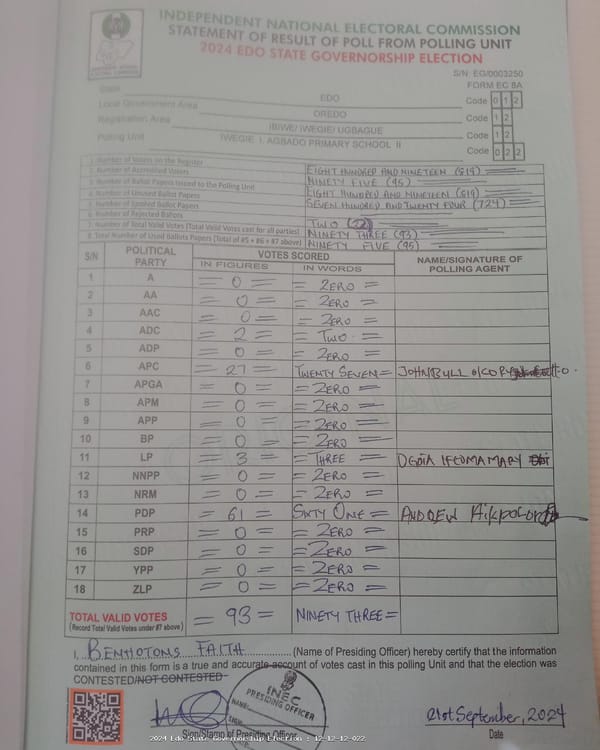 INDEPENDENT NATIONAL ELECTORAL COMMISSION
STATEMENT OF RESULT OF POLL FROM POLLING UNIT
2024 EDO STATE GOVERNORSHIP ELECTION
S/N: EG/0003250
FORM EC 8A
State EDO Code 0 1 2
Local Government Area OREDO Code 1 2
Registration Area IBIWE/ IWEGIE/ UGBAGUE Code 1 2
Polling Unit IWEGIE I. AGBADO PRIMARY SCHOOL II Code 0 2 2
1. Number of Voters on the Register EIGHT HUNDRED AND NINETEEN (819)
2. Number of Accredited Voters NINETY FIVE (95)
3. Number of Ballot Papers Issued to the Polling Unit EIGHT HUNDRED AND NINETEEN (819)
4. Number of Unused Ballot Papers SEVEN HUNDRED AND TWENTY FOUR (724)
5. Number of Spoiled Ballot Papers
6. Number of Rejected Ballots TWO
7. Number of Total Valid Votes (Total Valid Votes cast for all parties) NINETY THREE (93)
8. Total Number of Used Ballots Papers (Total of #5 + #6 + #7 above) NINETY FIVE (95)
S/N POLITICAL PARTY VOTES SCORED NAME/SIGNATURE OF POLLING AGENT
IN FIGURES IN WORDS
1 A = 0 = = ZERO =
2 AA = 0 = = ZERO =
3 AAC = 0 = = ZERO =
4 ADC = 2 = = TWO =
5 ADP = 0 = = ZERO =
6 APC = 27 = TWENTY SEVEN = JOHNBULL
7 APGA = 0 = = ZERO =
8 APM = 0 = = ZERO =
9 APP = 0 = = ZERO =
10 BP = 0 = = ZERO =
11 LP = 3 = = THREE = MARY
12 NNPP = 0 = = ZERO =
13 NRM = 0 = = ZERO =
14 PDP = 61 = SIXTY ONE = ANDREW
15 PRP = 0 = = ZERO =
16 SDP = 0 = = ZERO =
17 YPP = 0 = = ZERO =
18 ZLP = 0 = = ZERO =
TOTAL VALID VOTES = 93 = NINETY THREE =
(Record Total Valid Votes under #7 above)
I, BENHOTONS FAITH (Name of Presiding Officer) hereby certify that the information
contained in this form is a true and accurate account of votes cast in this polling Unit and that the election was
CONTESTED/NOT CONTESTED
INEC
PRESIDING OFFICER
21st September, 2024
Sign/Stamp of Presiding Officer Date
2024 Edo State Governorship Election : 12-12-12-022